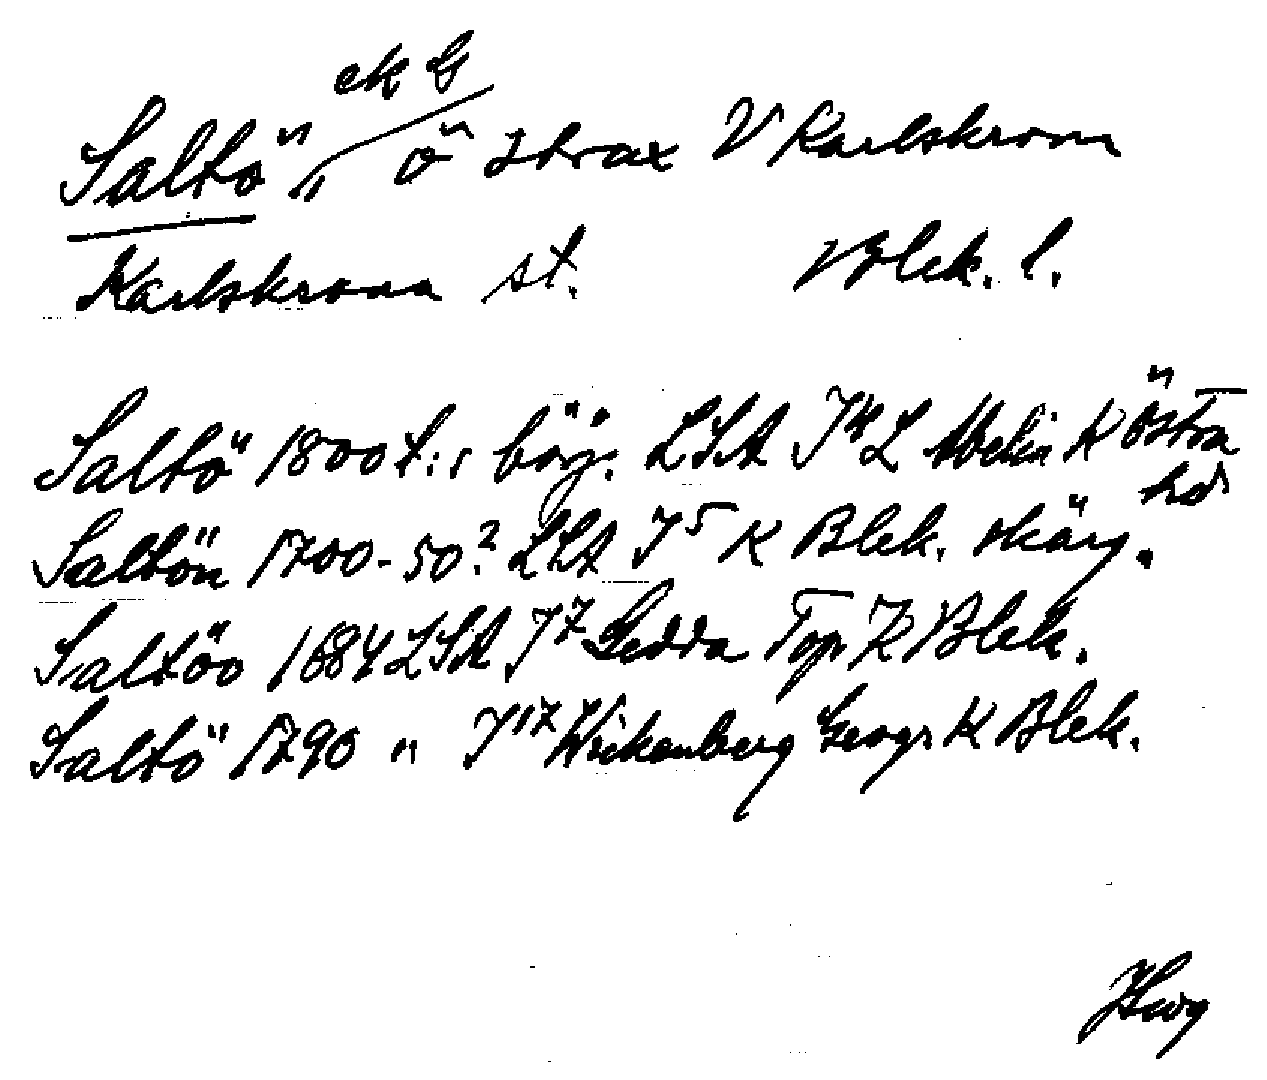 ek G
Saltö " ö strax V Karlskrona
Karlskrona st. Blek. l.
Saltö 1800 t:s börj. LSA J14 L Melin K Östra hd
Saltön 1700-50? LSA J5 K Blek. skärg.
Saltöo 1684 LSA J7 Gedda Top K Blek.
Saltö 1790 " J17 Wickenberg Geogr K Blek.